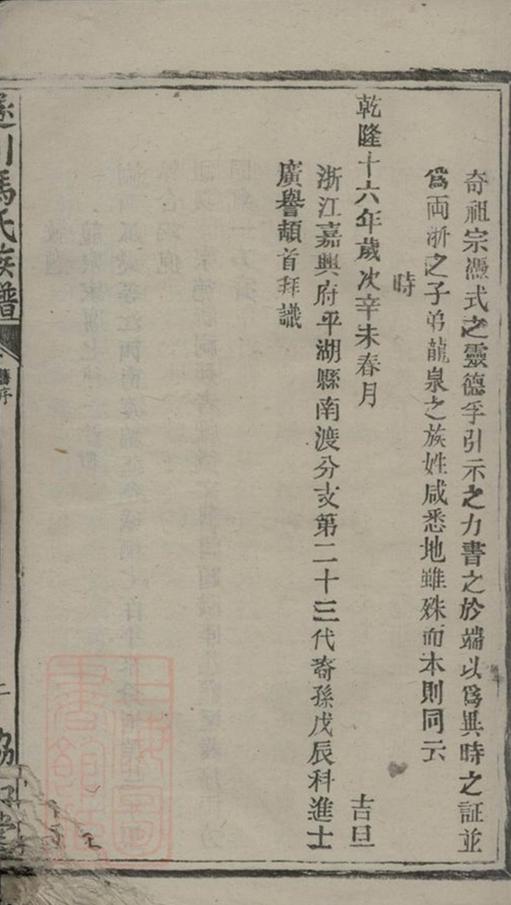 奇祖宗憑式之靈德孚引示之力書之於端以爲異時之証並
爲両浙之子弟龍泉之族姓咸悉地雖殊而本則同云
時
乾隆十六年歲次辛未春月 吉旦
浙江嘉興府平湖縣南渡分支第二十三代裔孫戊辰科進士
廣譽頓首拜識
馮氏族譜